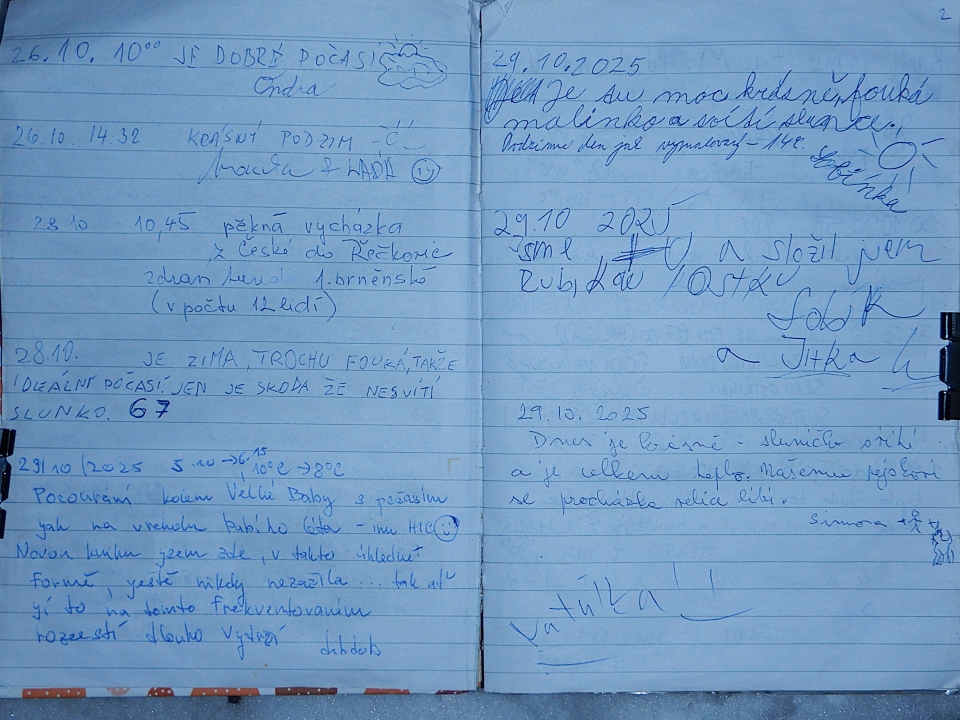 26.10. 10⁰⁰ JE DOBRÉ POČASÍ
Ondra
26.10. 14.32 KRÁSNÝ PODZIM
& LADA
28.10 10,45 pěkná vycházka
z České do Řečkovic
1. brněnská
(v počtu 12 lidí)
28.10. JE ZIMA, TROCHU FOUKÁ, TAKŽE
IDEÁLNÍ POČASÍ. JEN JE ŠKODA ŽE NESVÍTÍ
SLUNKO. 67
29/10/2025 5.10 → 6.15 10°C → 8°C
Pocourání kolem Velké Baby s počasím
jak na vrcholu babího léta - inu HIC
Novou knihu jsem zde, v takto úhledné
formě, ještě nikdy nezažila ... tak ať
jí to na tomto frekventovaném
rozcestí dlouho vydrží
2
29.10.2025
Je tu moc krásně, fouká
malinko a svítí slunce.
Podzimní den jak vymalovaný - 14°C.
29.10 2025
Jsme a složil jsem
Rubikovu kostku
a Jitka
29.10.2025
Dnes je krásně - sluníčko svítí
a je celkem teplo. Našemu pejskovi
se procházka velice líbí.
Simona